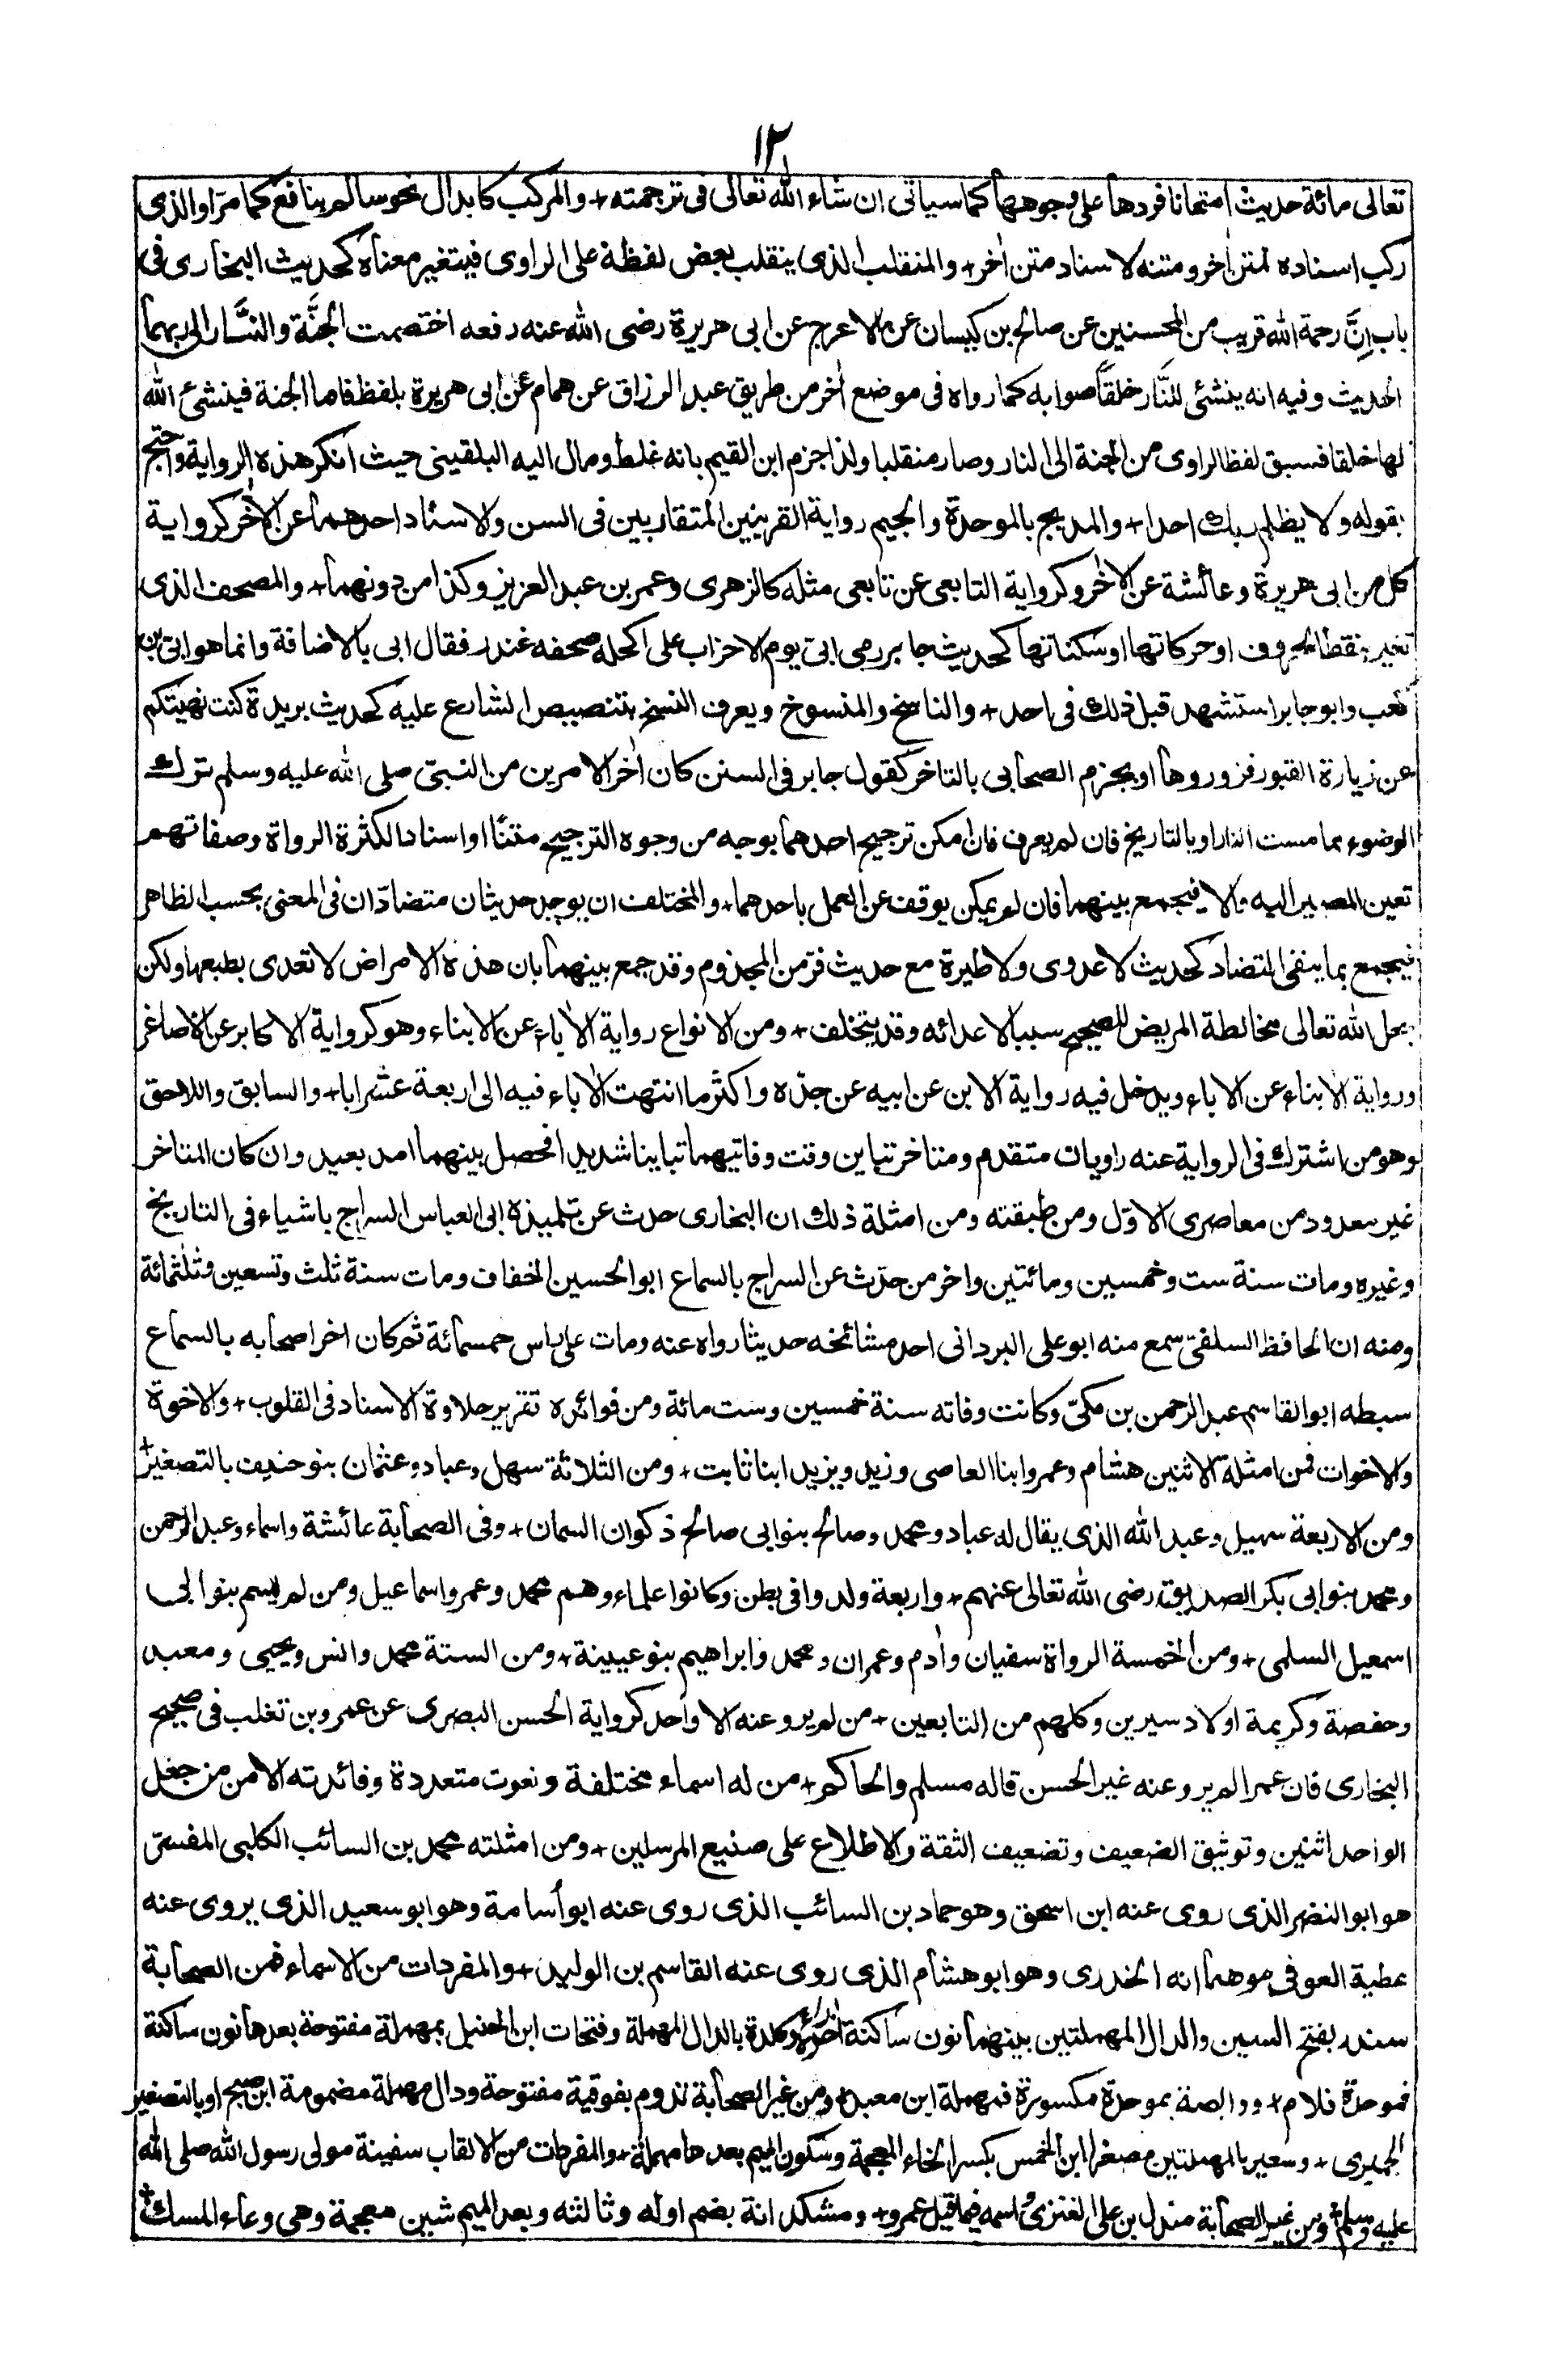 ١٢
تعالى مائة حديث امتحانا فردها على وجوهها كما سياتى ان شاء الله تعالى فى ترجمته + والمركب كابدال نحو سالم بنافع كما مرّ او الذى
ركب اسناده لمتن اٰخر ومتنه لاسناد متن اٰخر + والمنقلب الذى ينقلب بعض لفظه على الراوى فيتغير معناه كحديث البخارى فى
باب اِنَّ رحمة الله قريب من المحسنين عن صالح بن كيسان عن الاعرج عن ابى هريرة رضى الله عنه رفعه اختصمت الجنَّة والنَّار الى ربهما
الحديث وفيه انه ينشئ للنَّار خلقاً صوابه كما رواه فى موضع اٰخر من طريق عبد الرزاق عن همام عن ابى هريرة بلفظ فاما الجنة فينشئ الله
لها خلقا فسبق لفظ الراوى من الجنة الى النار وصار منقلبا ولذا جزم ابن القيم بانه غلط ومال اليه البلقينى حيث انكر هذه الرواية واحتج
بقوله ولا يظلم ربك احدا + والمدبج بالموحدة والجيم رواية القرينين المتقاربين فى السن والاسناد احدهما عن الاٰخر كرواية
كل من ابى هريرة وعائشة عن الاٰخر وكرواية التابعى عن تابعى مثله كالزهرى وعمر بن عبد العزيز وكذا من دونهما + والمصحف الذى
تغير بنقط الحروف او حركاتها او سكناتها كحديث جابر رمى ابىّ يوم الاحزاب على اكحله صحفه غندر فقال ابى بالاضافة وانما هو ابىّ بن
كعب وابو جابر استشهد قبل ذلك فى احد + والناسخ والمنسوخ ويعرف النسخ بتنصيص الشارع عليه كحديث بريدة كنت نهيتكم
عن زيارة القبور فزوروها او بجزم الصحابى بالتاخر كقول جابر فى السنن كان اٰخر الامرين من النبىّ صلى الله عليه وسلم ترك
الوضوء مما مست النار او بالتاريخ فان لم يعرف فان امكن ترجيح احدهما بوجه من وجوه الترجيح متنًا او اسنادا لكثرة الرواة وصفاتهم
تعين المصير اليه والا فيجمع بينهما فان لم يمكن يوقف عن العمل باحدهما + والمختلف ان يوجد حديثان متضادّان فى المعنى بحسب الظاهر
فيجمع بما ينفى التضاد كحديث لا عدوى ولا طيرة مع حديث فرّ من المجذوم وقد جمع بينهما بان هذه الامراض لا تعدى بطبعها ولكن
جعل الله تعالى مخالطة المريض للصحيح سببا لاعدائه وقد يتخلف + ومن الانواع رواية الاٰباء عن الابناء وهو كرواية الاكابر عن الاصاغر
ورواية الابناء عن الاباء ويدخل فيه رواية الابن عن ابيه عن جدّه واكثر ما انتهت الاٰباء فيه الى اربعة عشر ابا + والسابق واللاحق
وهو من اشترك فى الرواية عنه راويان متقدم ومتاخر تباين وقت وفاتيهما تباينا شديدا فحصل بينهما امد بعيد وان كان المتاخر
غير معدود من معاصرى الاوّل ومن طبقته ومن امثلة ذلك ان البخارى حدث عن تلميذه ابى العباس السراج باشياء فى التاريخ
وغيره ومات سنة ست وخمسين ومائتين واخر من حدّث عن السراج بالسماع ابو الحسين الخفاف ومات سنة ثلث وتسعين وثلثمائة
ومنه ان الحافظ السلفى سمع منه ابو على البردانى احد مشائخه حديثا رواه عنه ومات على راس خمسمائة ثم كان اخر اصحابه بالسماع
سبطه ابو القاسم عبد الرحمن بن مكىّ وكانت وفاته سنة خمسين وست مائة ومن فوائده تقرير حلاوة الاسناد فى القلوب + والاخوة
والاخوات فمن امثلة الاثنين هشام وعمرو ابنا العاصى وزيد ويزيد ابنا ثابت + ومن الثلاثة سهل وعباد وعثمان بنو حنيف بالتصغير +
ومن الاربعة سهيل وعبد الله الذى يقال له عباد ومحمد وصالح بنو ابى صالح ذكوان السمان + وفى الصحابة عائشة واسماء وعبد الرحمن
ومحمد بنو ابى بكر الصديق رضى الله تعالى عنهم + واربعة ولدوا فى بطن وكانوا علماء وهم محمد وعمر واسماعيل ومن لم يسم بنو ابى
اسمعيل السلمى + ومن الخمسة الرواة سفيان واٰدم وعمران ومحمد وابراهيم بنو عيينة + ومن الستة محمد وانس ويحيى ومعبد
وحفصة وكريمة اولاد سيرين وكلهم من التابعين + من لم يرو عنه الا واحد كرواية الحسن البصرى عن عمرو بن تغلب فى صحيح
البخارى فان عمرا لم يرو عنه غير الحسن قاله مسلم والحاكم + من له اسماء مختلفة ونعوت متعددة وفائدته الامن من جعل
الواحد اثنين وتوثيق الضعيف وتضعيف الثقة والاطلاع على صنيع المرسلين + ومن امثلته محمد بن السائب الكلبى المفسّر
هو ابو النضر الذى روى عنه ابن اسحق وهو حماد بن السائب الذى روى عنه ابو اُسامة وهو ابو سعيد الذى يروى عنه
عطية العوفى موهما انه الخدرى وهو ابو هشام الذى روى عنه القاسم بن الوليد + والمفردات من الاسماء فمن الصحابة
سندر بفتح السين والدال المهملتين بينهما نون ساكنة اٰخره راء وكلدة بالدال المهملة وفتحات ابن الحنبل بمهملة مفتوحة بعدها نون ساكنة
فموحدة فلام + ووابصة بموحدة مكسورة فمهملة ابن معبد + ومن غير الصحابة تدوم بفوقية مفتوحة ودال مهملة مضمومة ابن صبح او بالتصغير
الحميرى + وسعير بالمهملتين مصغرا ابن الخمس بكسر الخاء المعجمة وسكون الميم بعدها مهملة + والمفردات من الالقاب سفينة مولى رسول الله صلى الله
عليه وسلم + ومن غير الصحابة مندل بن على العنزى واسمه فيما قيل عمرو + ومشكدانة بضم اوله وثالثه وبعد الميم شين معجمة وهى وعاء المسك +